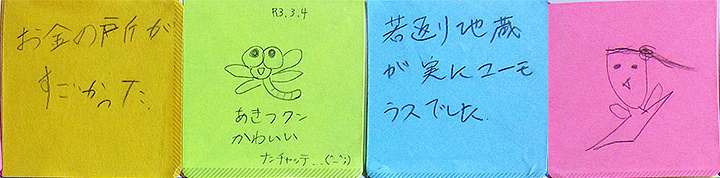 お金の所が
すごかった.
R3.3.4
あきつクン
かわいい
ナンチャッテ...(^_^;)
若返り地蔵
が実にユーモ
ラスでした.